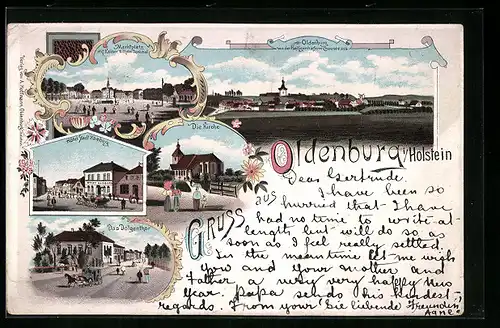 Marktplatz
mit Kaiser Wilhelm Denkmal
Oldenburg
Die Kirche
Hôtel Stadt Hamburg
Das Dolgenthor
Gruss aus
Oldenburg i/Holstein
Dear Gertrude.
I have been so
hurried that I have
had no time to write at
length, but will do so as
soon as I feel really settled.
In the meantime let me wish
you and your mother and
Father a very very happy New
Year. Papa sends his kindest
regards. From your Sie liebende Freundin